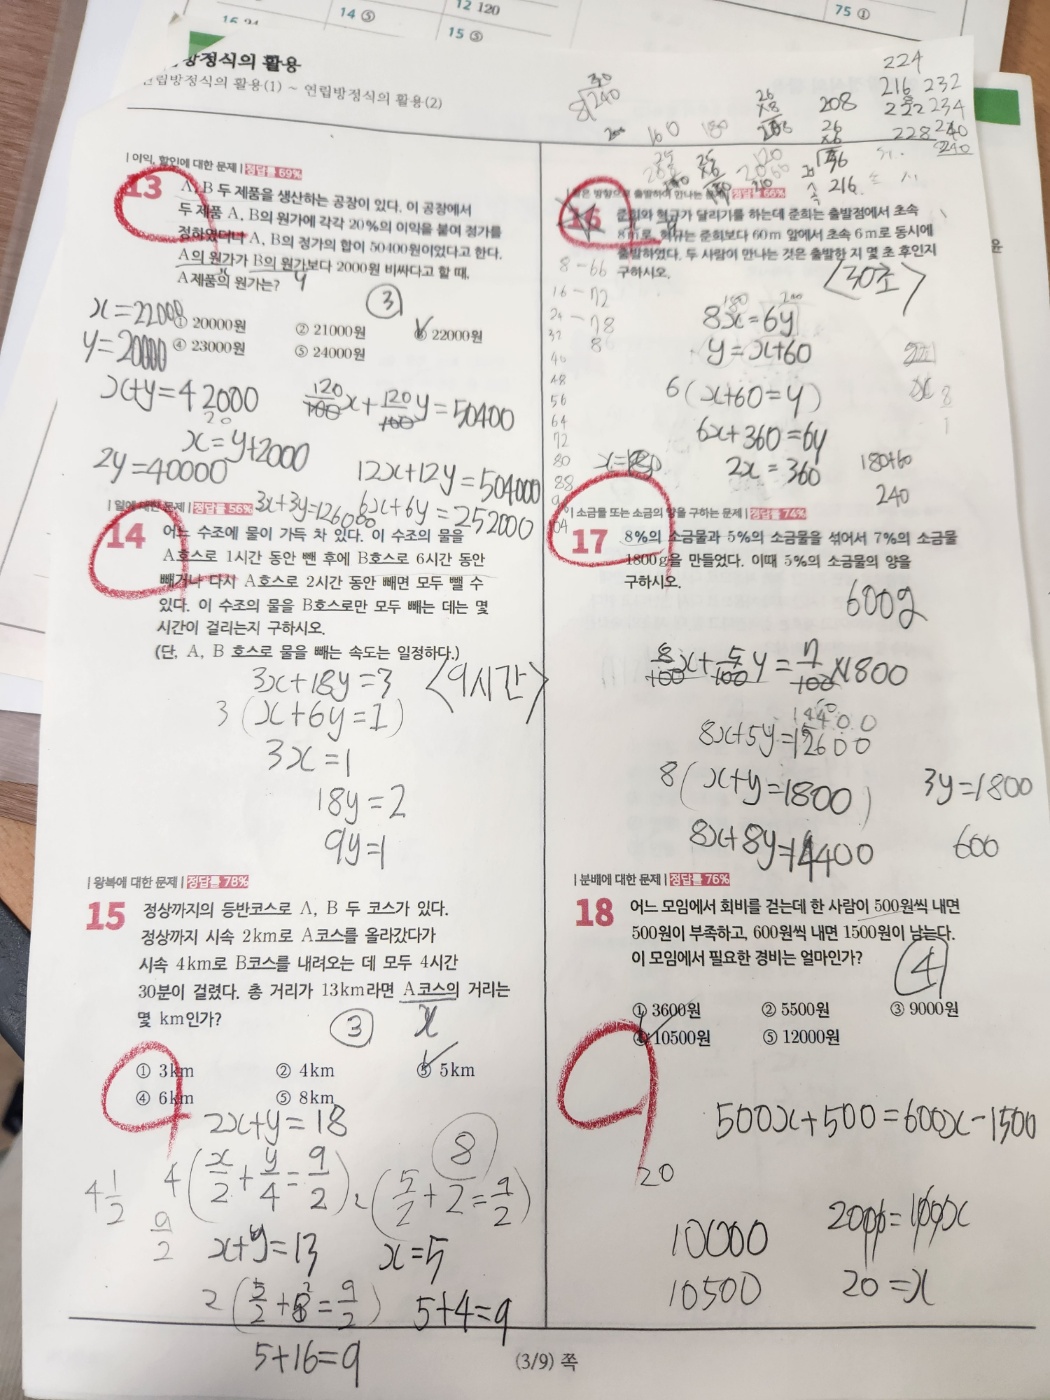 14 ⑤
12 120
15 ⑤
75 ①
방정식의 활용
연립방정식의 활용(1) ~ 연립방정식의 활용(2)
| 이익, 할인에 대한 문제 | 정답률 69%
13 A, B 두 제품을 생산하는 공장이 있다. 이 공장에서
두 제품 A, B의 원가에 각각 20%의 이익을 붙여 정가를
정하였더니 A, B의 정가의 합이 50400원이었다고 한다.
A의 원가가 B의 원가보다 2000원 비싸다고 할 때,
A제품의 원가는?
y
③
x=22000
① 20000원 ② 21000원 ③ 22000원
y=20000
④ 23000원 ⑤ 24000원
x+y=42000
120/100 x + 120/100 y = 50400
x=y+2000
2y=40000
12x+12y=504000
3x+3y=126000
6x+6y=252000
| 일에 대한 문제 | 정답률 56%
14 어느 수조에 물이 가득 차 있다. 이 수조의 물을
A호스로 1시간 동안 뺀 후에 B호스로 6시간 동안
빼거나 다시 A호스로 2시간 동안 빼면 모두 뺄 수
있다. 이 수조의 물을 B호스로만 모두 빼는 데는 몇
시간이 걸리는지 구하시오.
(단, A, B 호스로 물을 빼는 속도는 일정하다.)
3x+18y=3
<9시간>
3(x+6y=1)
3x=1
18y=2
9y=1
| 왕복에 대한 문제 | 정답률 78%
15 정상까지의 등반코스로 A, B 두 코스가 있다.
정상까지 시속 2km로 A코스를 올라갔다가
시속 4km로 B코스를 내려오는 데 모두 4시간
30분이 걸렸다. 총 거리가 13km라면 A코스의 거리는
몇 km인가?
③
x
① 3km ② 4km ③ 5km
④ 6km ⑤ 8km
2x+y=18
8
4 1/2
4(x/2 + y/4 = 9/2)
2(5/2 + 2 = 9/2)
9/2
x+y=13
x=5
5+4=9
5+16=9
224
216 232
208
222 234
228 240
240
216
| 정답률 66%
16 준희와 혁규가 달리기를 하는데 준희는 출발점에서 초속
8m로, 혁규는 준희보다 60m 앞에서 초속 6m로 동시에
출발하였다. 두 사람이 만나는 것은 출발한 지 몇 초 후인지
구하시오.
<30초>
8-66
16-72
24-78
8x=6y
y=x+60
6(x+60=y)
6x+360=6y
2x=360
180+60
240
| 소금물 또는 소금의 양을 구하는 문제 | 정답률 74%
17 8%의 소금물과 5%의 소금물을 섞어서 7%의 소금물
1800g을 만들었다. 이때 5%의 소금물의 양을
구하시오.
600g
8/100 x + 5/100 y = 7/100 × 1800
14400
8x+5y=12600
8(x+y=1800)
3y=1800
8x+8y=14400
600
| 분배에 대한 문제 | 정답률 76%
18 어느 모임에서 회비를 걷는데 한 사람이 500원씩 내면
500원이 부족하고, 600원씩 내면 1500원이 남는다.
이 모임에서 필요한 경비는 얼마인가?
④
① 3600원 ② 5500원 ③ 9000원
④ 10500원 ⑤ 12000원
500x+500=600x-1500
20
2000=100x
10000
10500
20=x
(3/9) 쪽